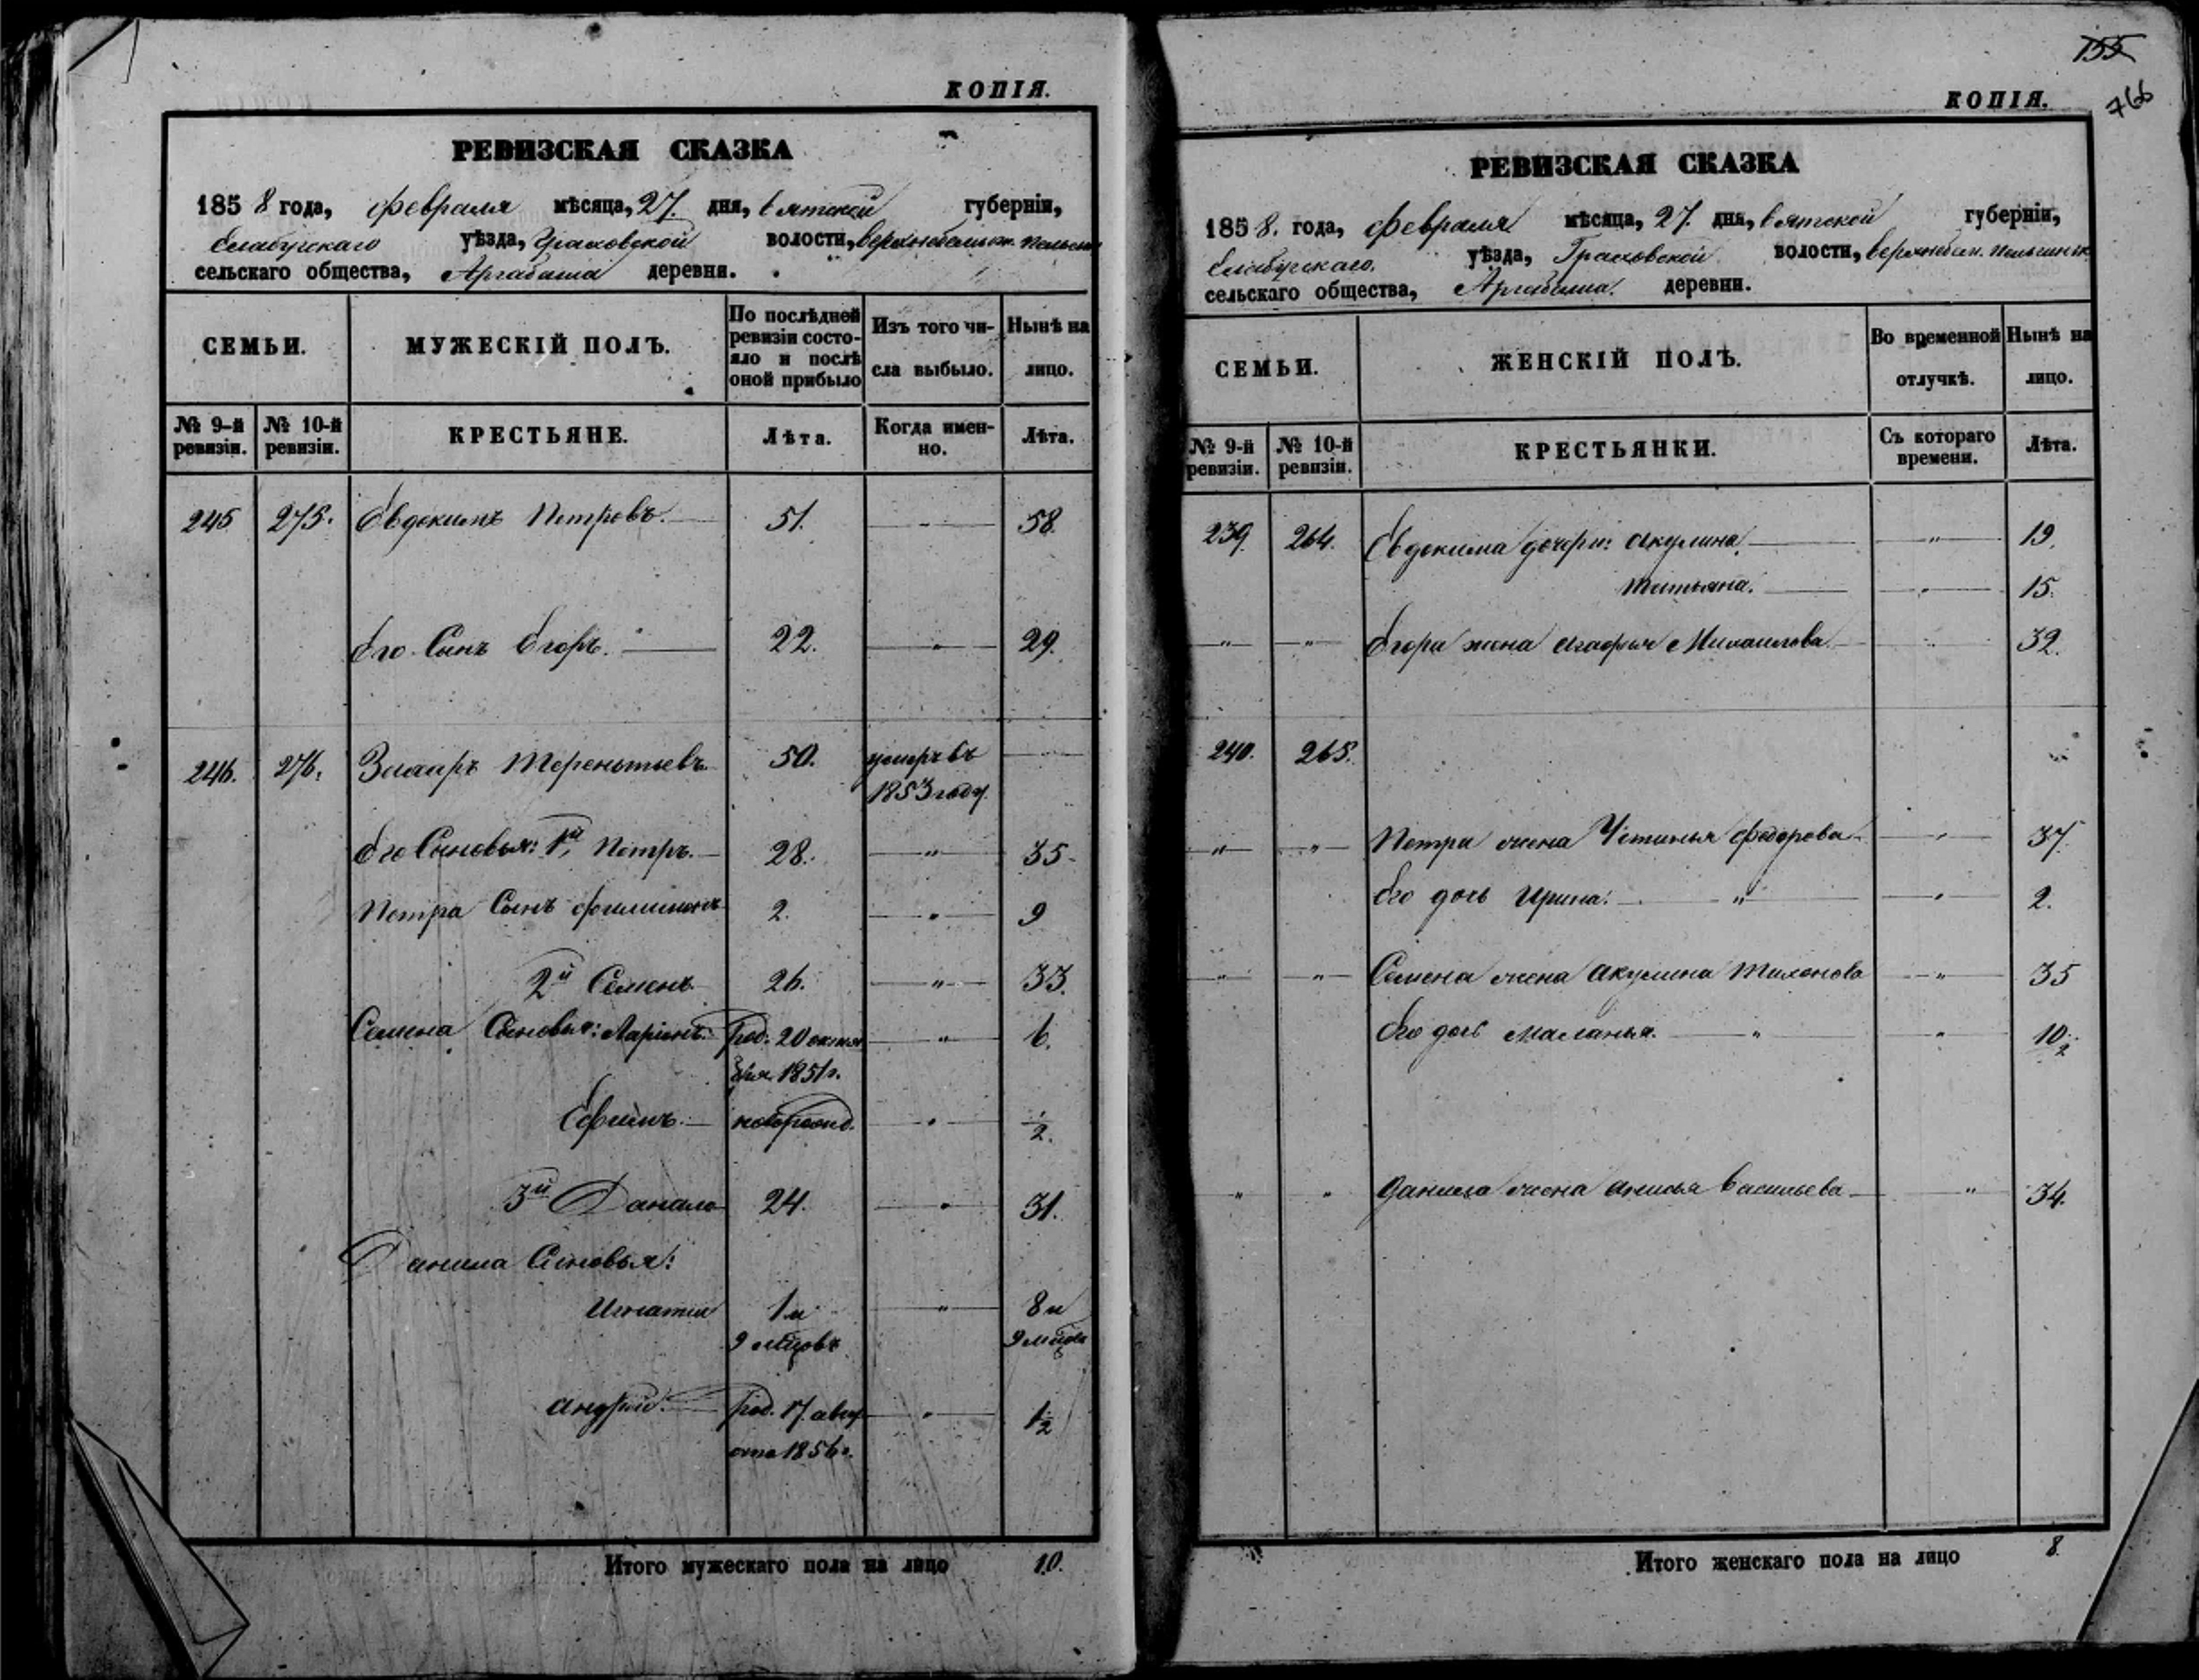 КОПІЯ.
РЕВИЗСКАЯ СКАЗКА
1858 года, февраля мѣсяца, 27. дня, Вятской губерніи,
Елабугскаго уѣзда, Граховской волости,
сельскаго общества, Аргабаша деревни.
СЕМЬИ.
МУЖЕСКІЙ ПОЛЪ.
По послѣдней ревизіи состо-
яло и послѣ
оной прибыло
Изъ того чи-
сла выбыло.
Нынѣ на
лицо.
№ 9-й ревизіи.
№ 10-й ревизіи.
КРЕСТЬЯНЕ.
Лѣта.
Когда имен-
но.
Лѣта.
245 275. Евдокимъ Петровъ. 51. — " — 58.
Его Сынъ Егоръ. 22. — " — 29.
246. 276. Захаръ Терентьевъ 50. умеръ въ
1853 году.
Его Сыновья: 1й Петръ. 28. — " — 35.
Петра Сынъ Филимонъ 2. — " — 9
2й Семенъ 26. — " — 33.
Семена Сыновья: Ларіонъ. Род. 20 октя
бря 1851г. — " — 6.
Ефимъ. новорожд. — " — 1/2.
3й Данило 24. — " — 31.
Данила Сыновья:
Игнатій 1 и — " — 8 и
9 мѣсцовъ 9 мѣсцовъ
Андрей. Род. 17. авгу — " — 1 1/2
ста 1856г.
Итого мужескаго пола на лицо 10.
155
766
КОПІЯ.
РЕВИЗСКАЯ СКАЗКА
1858. года, февраля мѣсяца, 27. дня, Вятской губерніи,
Елабугскаго. уѣзда, Граховской волости,
сельскаго общества, Аргабаша. деревни.
СЕМЬИ.
ЖЕНСКІЙ ПОЛЪ.
Во временной
отлучкѣ.
Нынѣ на
лицо.
№ 9-й ревизіи.
№ 10-й ревизіи.
КРЕСТЬЯНКИ.
Съ котораго
времени.
Лѣта.
239. 264. Евдокима дочери: Акулина. — " — 19.
Татьяна. — " — 15.
— " — — " — Егора жена Агафья Михаилова — " — 32.
240. 265.
— " — — " — Петра жена Устинья Федорова — " — 37.
Его дочь Ирина. — " — — " — 2.
— " — — " — Семена жена Акулина Тихонова — " — 35
Его дочь Маланья. — " — " — 10 1/2
" " Данила жена Анисья Васильева — " — 34.
Итого женскаго пола на лицо 8.